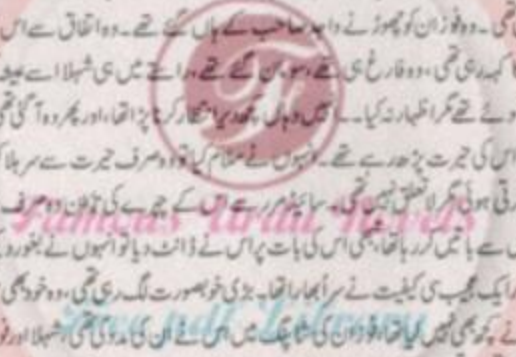 تھی۔ وہ فوزان کو چھوڑنے واحد صاحب کے ہاں گئے تھے۔ وہ اتفاق سے اس
کہہ رہی تھی، وہ فارغ ہی تھے، سو چلے گئے تھے، راستے میں ہی شہلا اسے
ہوئے تھے مگر اظہار نہ کیا۔ انہیں وہاں کچھ دیر انتظار کرنا پڑا تھا، اور پھر وہ آ گئی
اس کی حیرت پڑھ رہے تھے۔ انہوں نے سلام کیا تو وہ صرف حیرت سے سر ہلا
رتی ہوئی مگر لاتعلق نہیں تھی۔ سائیڈ مرر سے اس کے چہرے کی وہ صرف
Famous Urdu Novels
سے باتیں کر رہا تھا، کبھی اس کی بات پر اس نے ڈانٹ دیا تو انہوں نے بغور
ایک عجیب سی کیفیت نے سر ابھارا تھا۔ بڑی خوبصورت لگ رہی تھی، وہ خود بھی
Free pdf Library
نے کچھ بھی نہیں کیا تھا، فوزان کی شاپنگ میں اس نے ان کی مدد کی تھی، شہلا اور